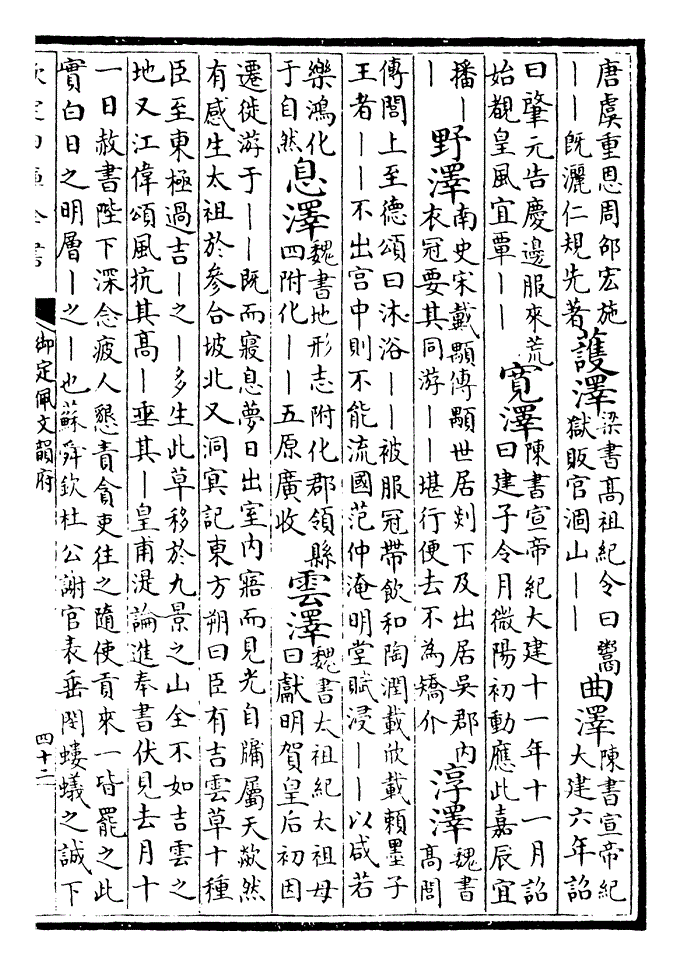 唐虞重恩周邵宏施
——既灑仁規先著
䕶澤
梁書髙祖紀令曰鬻
獄販官涸山——
曲澤
陳書宣帝紀
大建六年詔
曰肇元告慶邊服來荒
始覩皇風宜覃——
寛澤
陳書宣帝紀大建十一年十一月詔
曰建子令月微陽初動應此嘉辰宜
播—
—
野澤
南史宋戴顒傳顒世居剡下及出居吳郡内
衣冠要其同游——堪行便去不為矯介
淳澤
魏書
髙閭
傳閭上至德頌曰沐浴——被服冠帶飲和陶潤載欣載賴墨子
王者——不出宫中則不能流國范仲淹明堂賦浸——以咸若
樂鴻化
于自然
息澤
魏書地形志附化郡領縣
四附化——五原廣收
雲澤
魏書太祖紀太祖母
曰獻明賀皇后初因
遷徙游于——既而寢息夢日出室内寤而見光自牖屬天欻然
有感生太祖於參合坡北又洞冥記東方朔曰臣有吉雲草十種
臣至東極過吉—之—多生此草移於九景之山全不如吉雲之
地又江偉頌風抗其髙—垂其—皇甫湜論進奉書伏見去月十
一日赦書陛下深念疲人懇責貪吏往之隨使貢來一皆罷之此
實白日之明層—之—也蘇舜欽杜公謝官表垂閔螻蟻之誠下
欽定四庫全書
御定佩文韻府
四十二